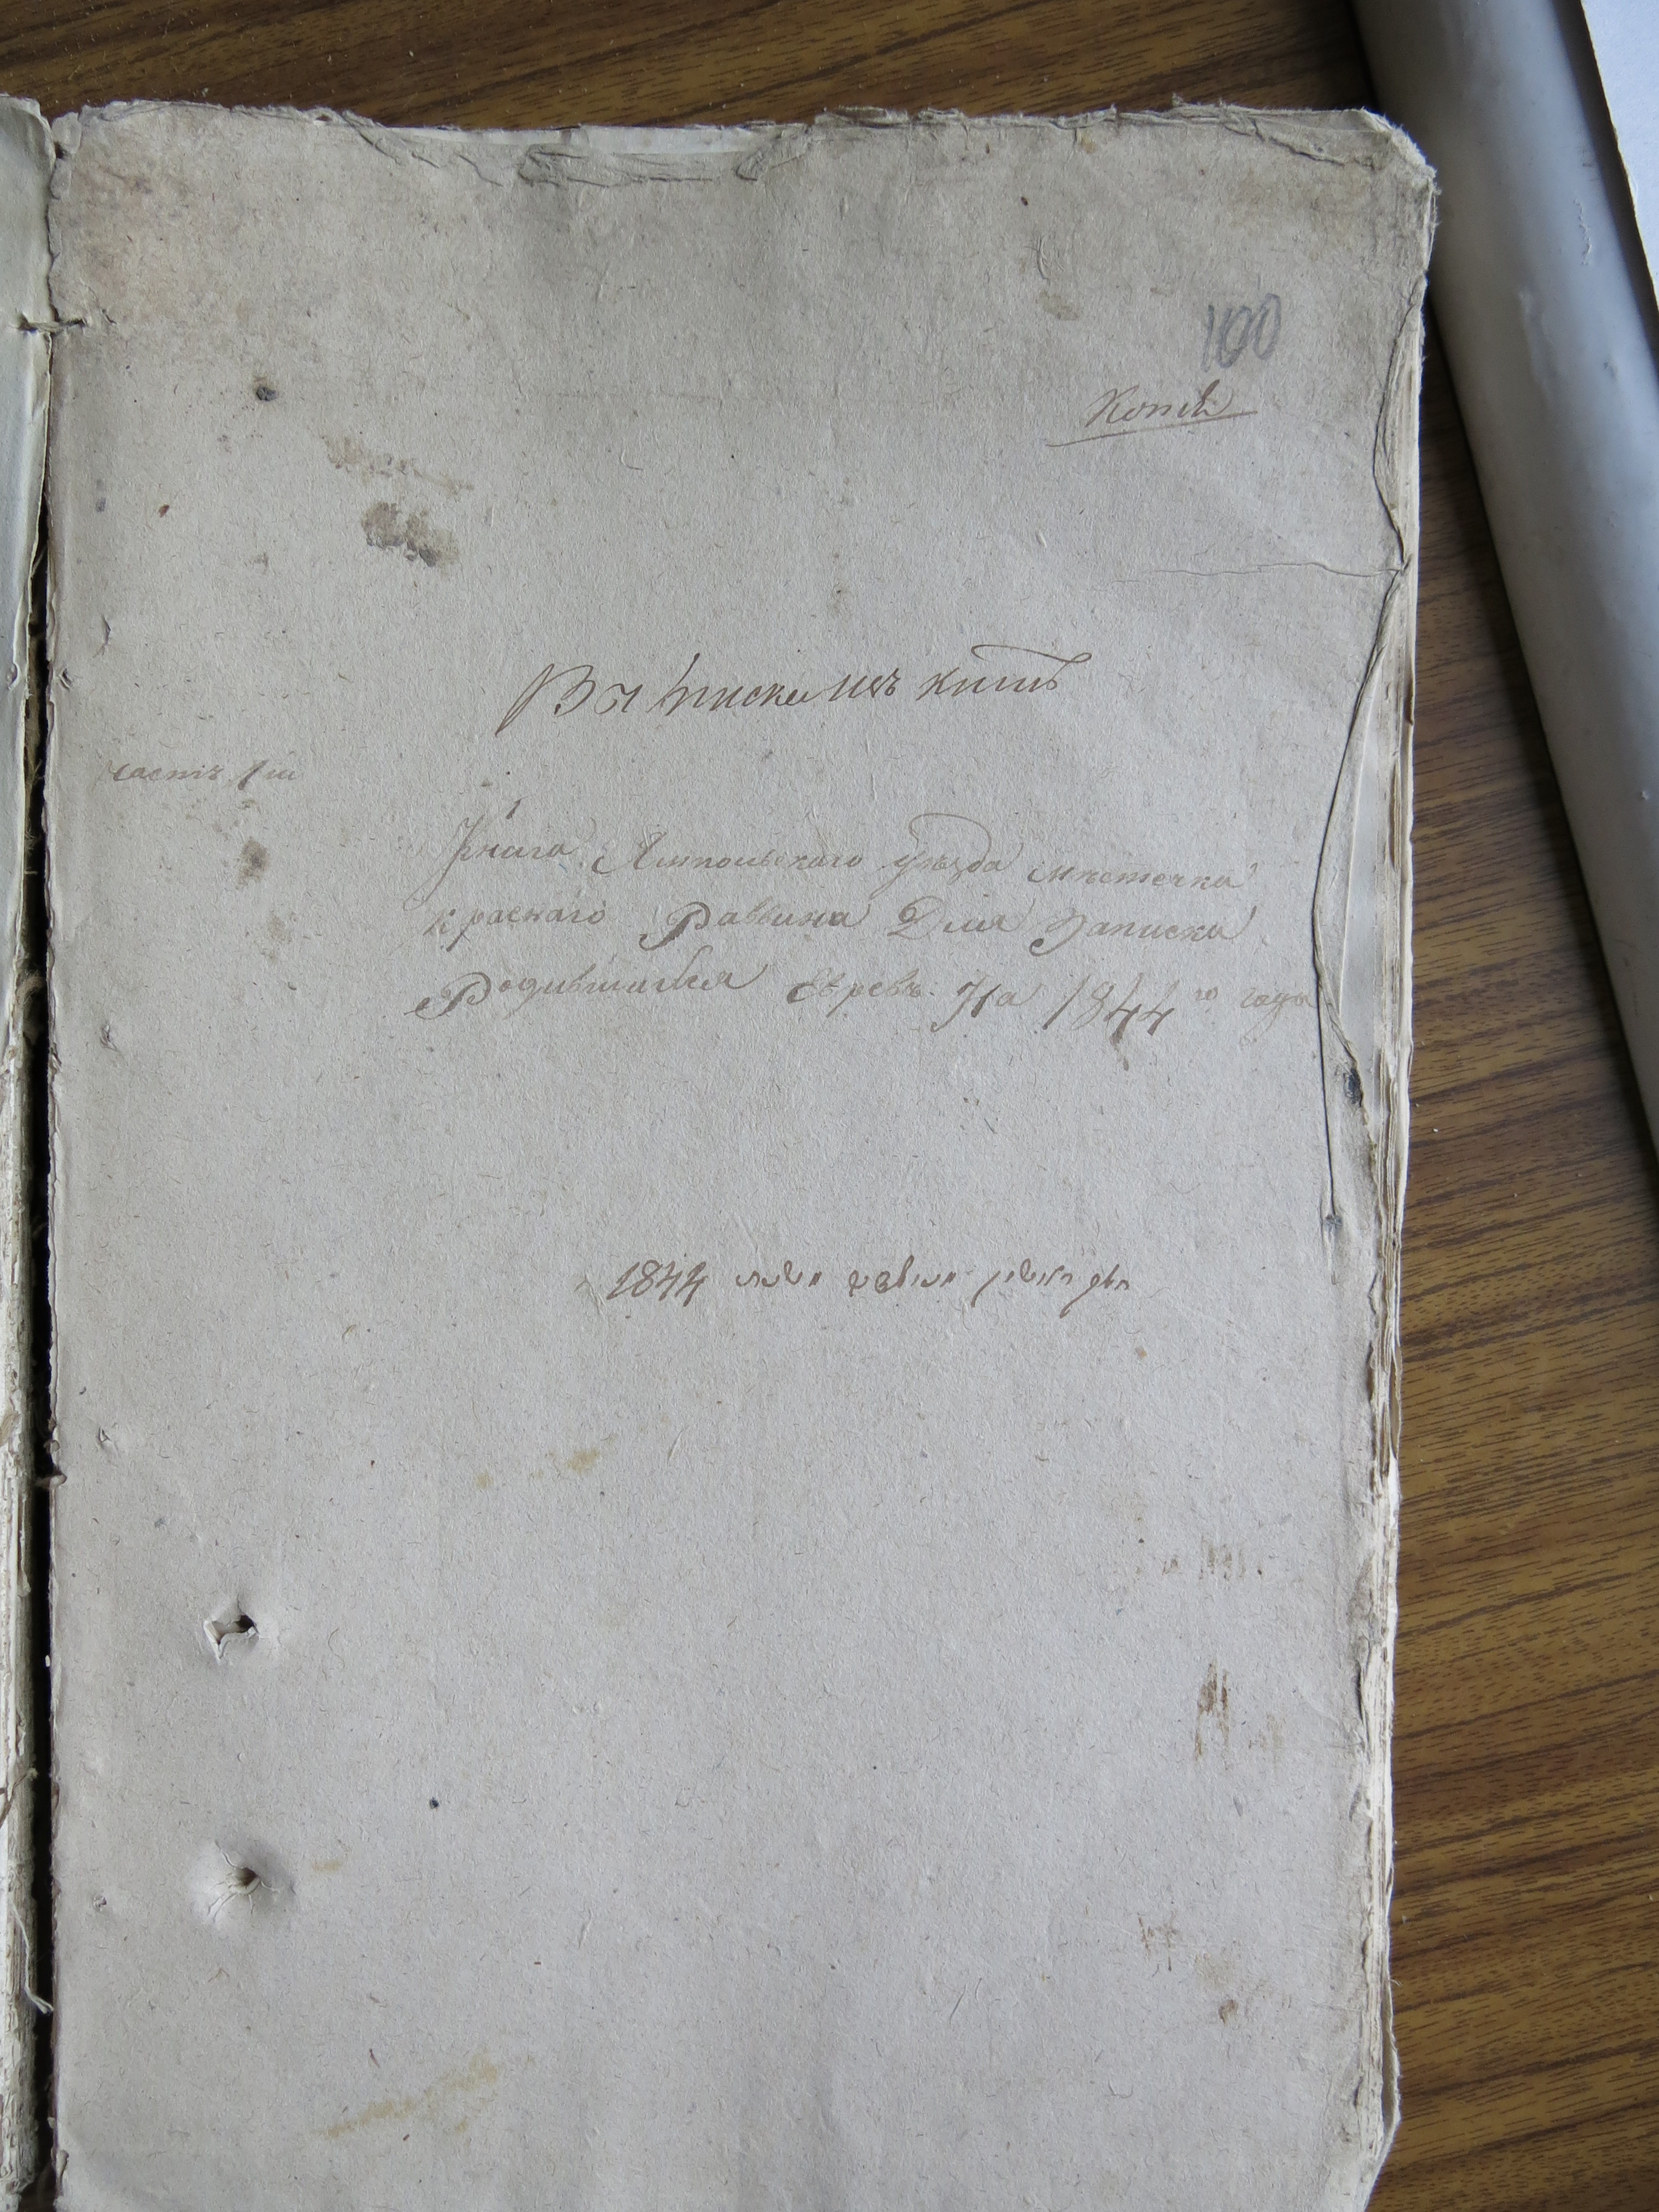 100
Копія
Выписка изъ книгъ
Часть 1ш
Книга Ямпольскаго уѣзда мѣстечка
Краснаго Раввина Для Записки
Родившихся Евреевъ На 1844 го года
1844